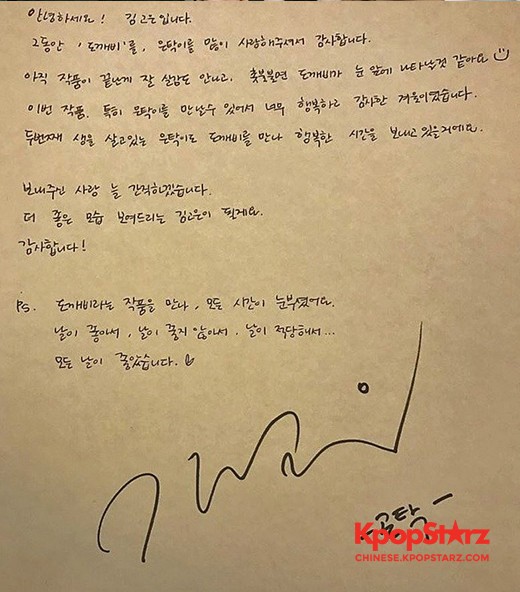 안녕하세요! 김고은입니다.
그동안 '도깨비'를, 은탁이를 많이 사랑해주셔서 감사합니다.
아직 작품이 끝난게 잘 실감도 안나고, 촛불불면 도깨비가 눈 앞에 나타날것 같아요
이번 작품, 특히 은탁이를 만날수 있어서 너무 행복하고 감사한 겨울이였습니다.
두번째 생을 살고있는 은탁이도 도깨비를 만나 행복한 시간을 보내고 있을거에요.
보내주신 사랑 늘 간직하겠습니다.
더 좋은 모습 보여드리는 김고은이 될게요.
감사합니다!
PS. 도깨비라는 작품을 만나, 모든 시간이 눈부셨어요.
날이 좋아서, 날이 좋지 않아서, 날이 적당해서...
모든 날이 좋았습니다.
KpopStarz
CHINESE.KPOPSTARZ.COM